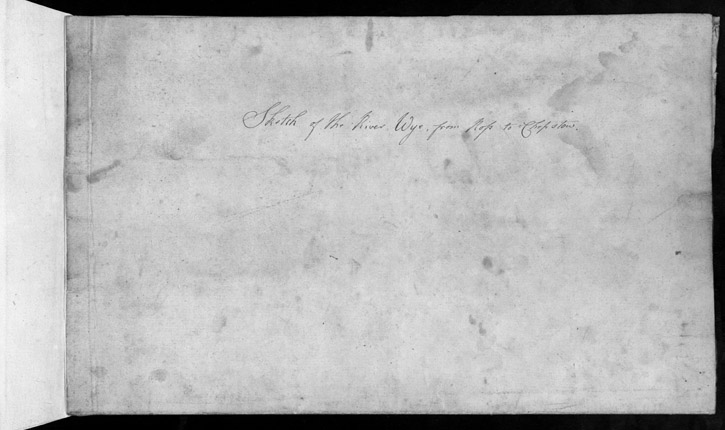 Sketch of the River Wye. from Ross to Chepstow.